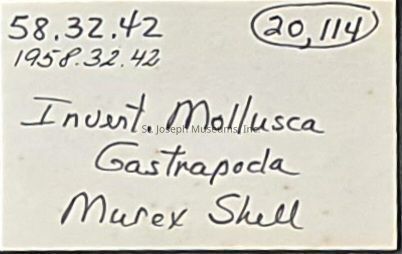 58.32.42 20,114
1958.32.42
Invert Mollusca
St. Joseph Museums, Inc.
Gastrapoda
Murex Shell